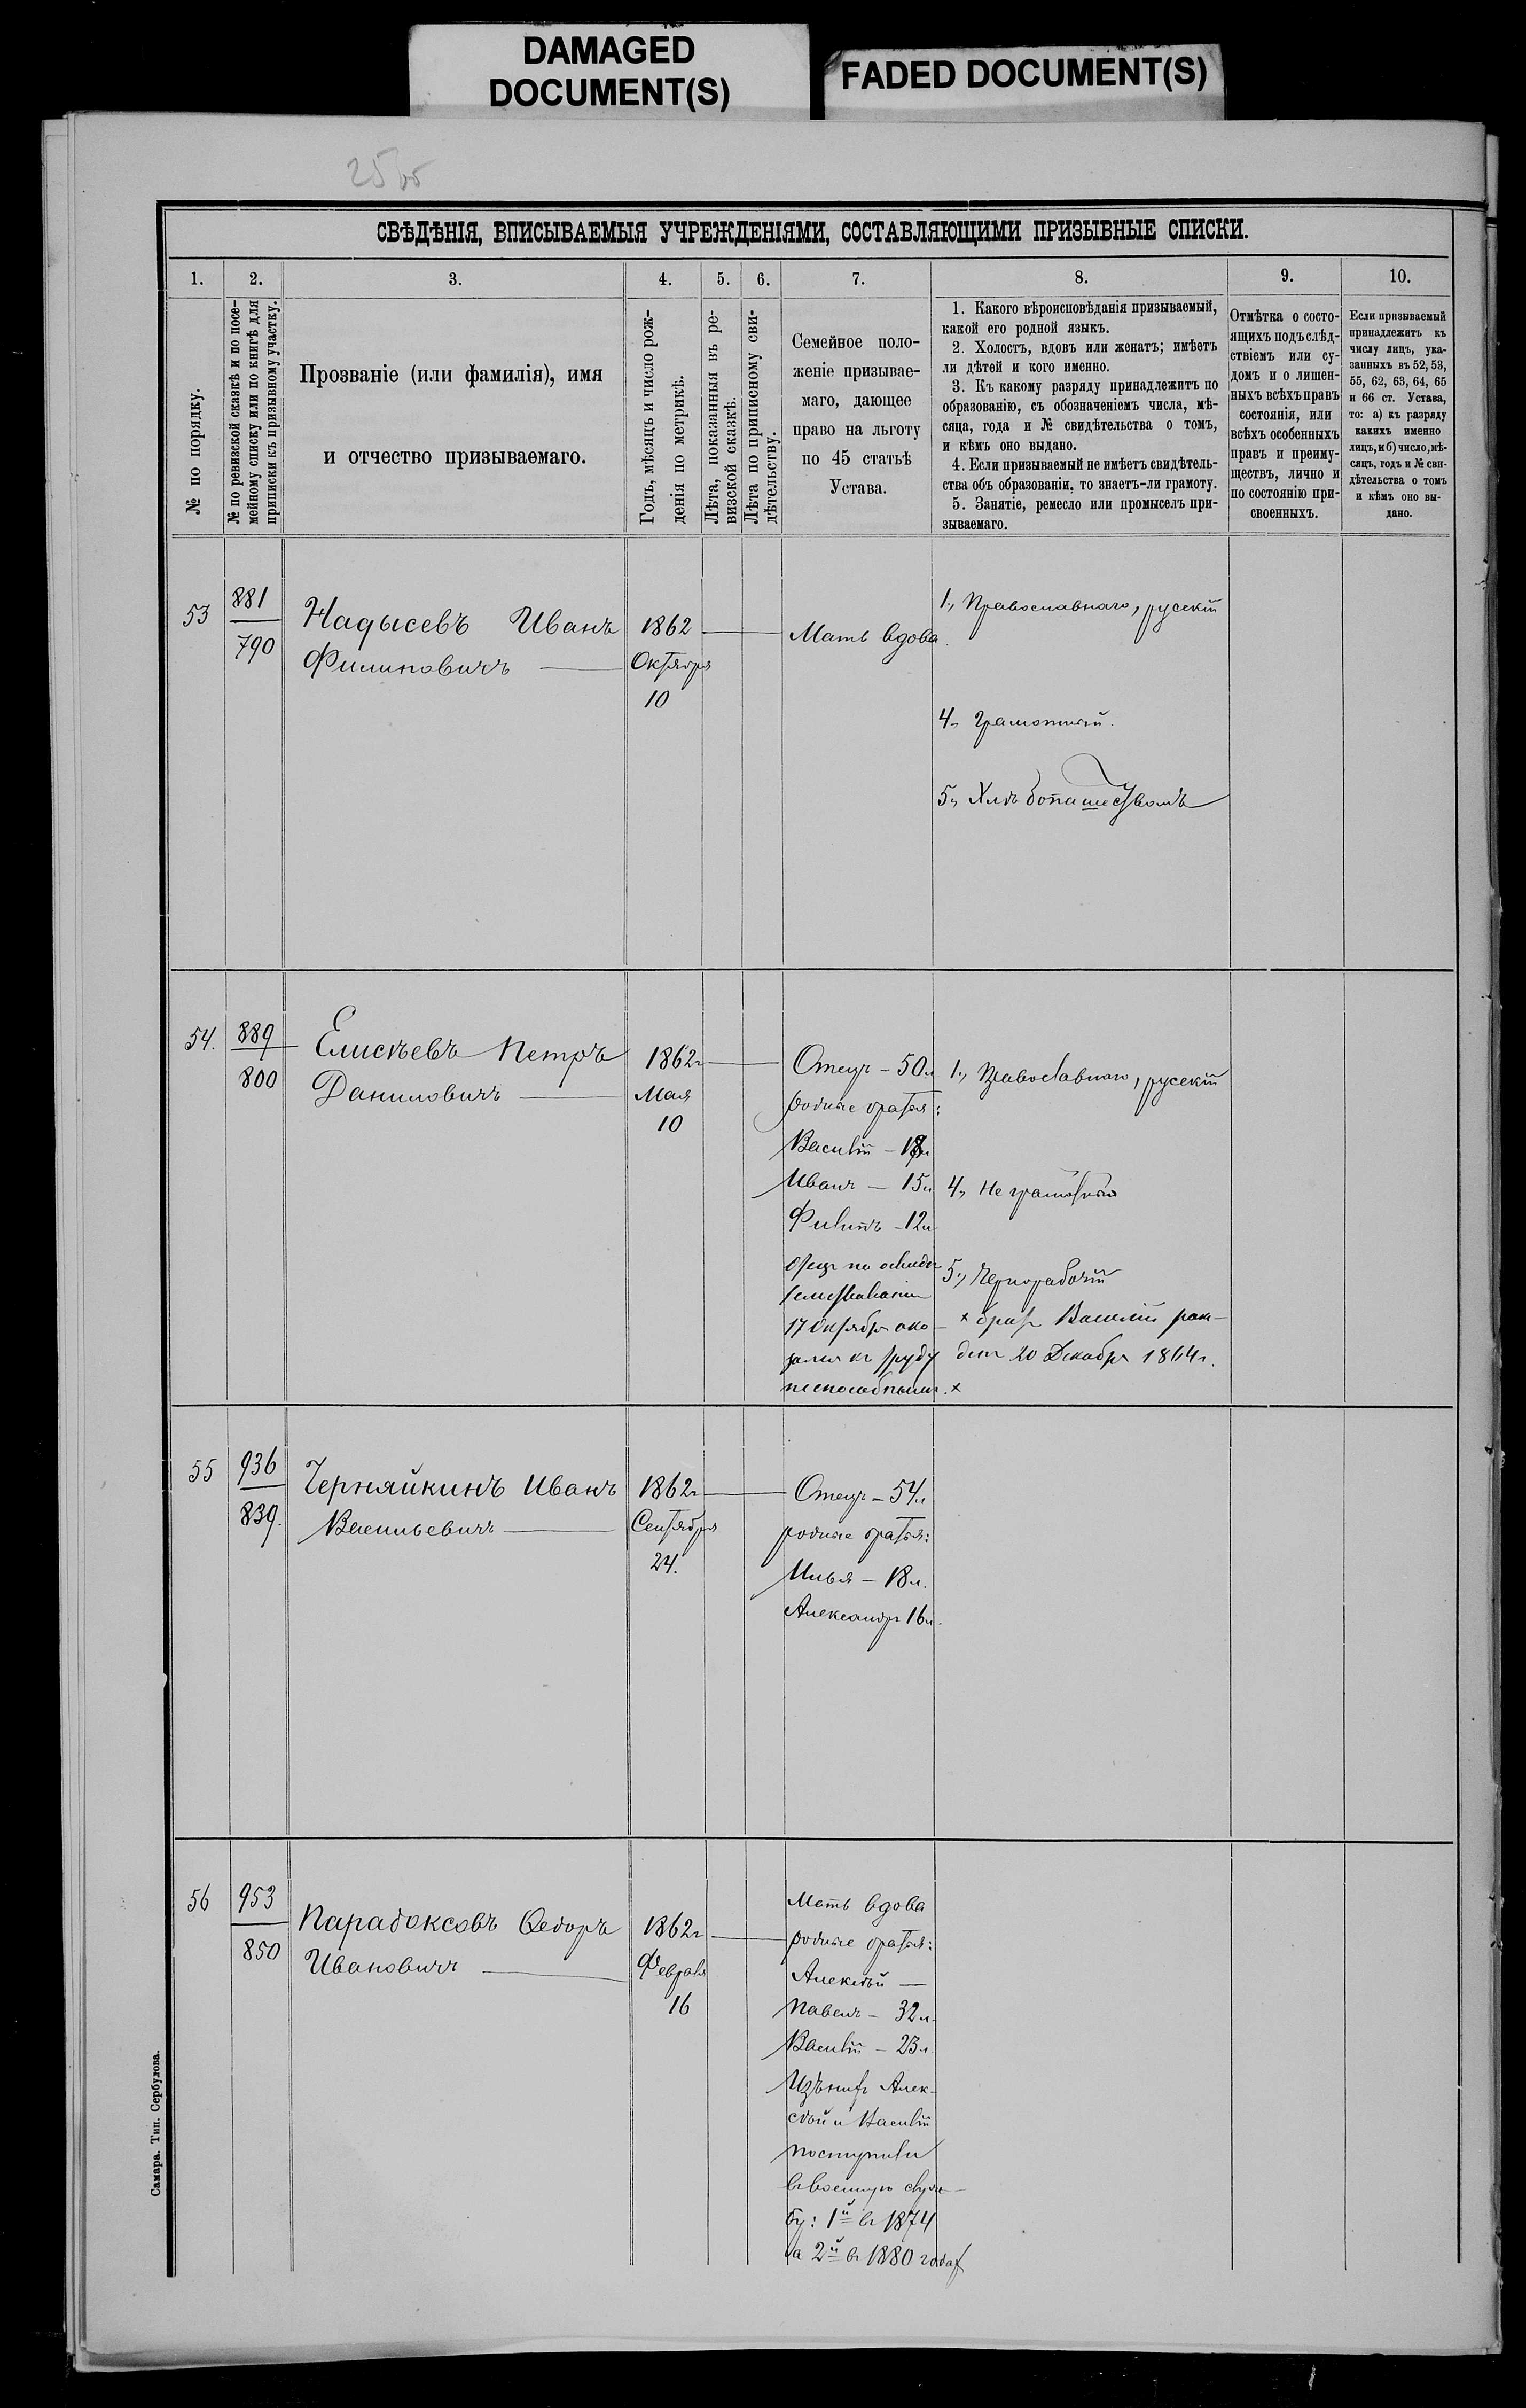 DAMAGED
DOCUMENT(S)
FADED DOCUMENT(S)
25 об
СВѢДѢНІЯ, ВПИСЫВАЕМЫЯ УЧРЕЖДЕНІЯМИ, СОСТАВЛЯЮЩИМИ ПРИЗЫВНЫЕ СПИСКИ.
1.
2.
3.
4.
5.
6.
7.
8.
9.
10.
№ по порядку.
№ по ревизской сказкѣ и по посе-
мейному списку или по книгѣ для
приписки къ призывному участку.
Прозваніе (или фамилія), имя
и отчество призываемаго.
Годъ, мѣсяцъ и число рож-
денія по метрикѣ.
Лѣта, показанныя въ ре-
визской сказкѣ.
Лѣта по приписному сви-
дѣтельству.
Семейное поло-
женіе призывае-
маго, дающее
право на льготу
по 45 статьѣ
Устава.
1. Какого вѣроисповѣданія призываемый,
какой его родной языкъ.
2. Холостъ, вдовъ или женатъ; имѣетъ
ли дѣтей и кого именно.
3. Къ какому разряду принадлежитъ по
образованію, съ обозначеніемъ числа, мѣ-
сяца, года и № свидѣтельства о томъ,
и кѣмъ оно выдано.
4. Если призываемый не имѣетъ свидѣтель-
ства объ образованіи, то знаетъ-ли грамоту.
5. Занятіе, ремесло или промыселъ при-
зываемаго.
Отмѣтка о состо-
ящихъ подъ слѣд-
ствіемъ или су-
домъ и о лишен-
ныхъ всѣхъ правъ
состоянія, или
всѣхъ особенныхъ
правъ и преиму-
ществъ, лично и
по состоянію при-
своенныхъ.
Если призываемый
принадлежитъ къ
числу лицъ, ука-
занныхъ въ 52, 53,
55, 62, 63, 64, 65
и 66 ст. Устава,
то: а) къ разряду
какихъ именно
лицъ, и б) число, мѣ-
сяцъ, годъ и № сви-
дѣтельства о томъ
и кѣмъ оно вы-
дано.
53
881
790
Надысевъ Иванъ
Филиповичъ
1862
Октября
10
Мать вдова.
1., Православнаго, русскій
4., Грамотный.
5., Хлѣбопашествомъ
54.
889
800
Елисѣевъ Петръ
Даниловичъ
1862 г
Мая
10
Отецъ - 50 л
родные братья:
Василій - 18 л
Иванъ - 15 л
Филипъ - 12 л
Отецъ по освидѣ
17 Октября ока-
зался къ труду
неспособнымъ. х
1., Православнаго, русскій
4., Не грамотный
5., Чернорабочій
х братъ Василій рож-
денъ 20 Декабря 1864 г.
55
936
839.
Черняйкинъ Иванъ
Васильевичъ
1862 г
Сентября
24.
Отецъ - 54 л
родные братья:
Илья - 18 л.
Александръ 16 л.
56
953
850
Парадоксовъ Ѳедоръ
Ивановичъ
1862 г
Февраля
16
Мать вдова
родные братья:
Алексѣй —
Павелъ - 32 л.
Василій - 23 л.
Изъ нихъ Алек-
сѣй и Василій
поступили
въ военную служ-
бу: 1й въ 1874
а 2й въ 1880 годах
Самара. Тип. Сербулова.